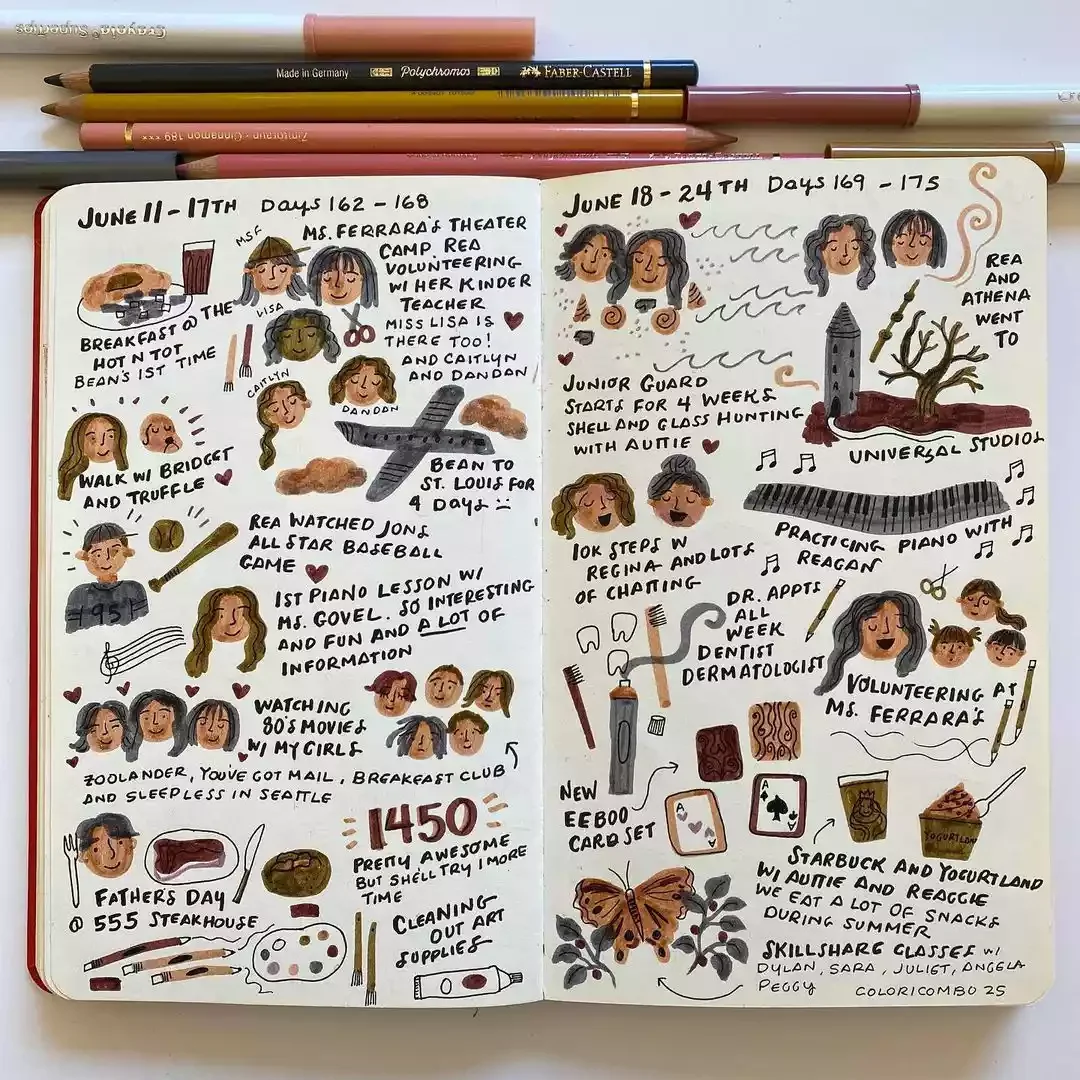 Crayola Supertips
Made in Germany Polychromos FABER-CASTELL
Zimtbraun · Cinnamon 189 ***
JUNE 11 - 17TH DAYS 162 - 168
MSF
MS. FERRARA'S THEATER
CAMP. REA
VOLUNTEERING
W/ HER KINDER
TEACHER
MISS LISA IS
THERE TOO!
AND CAITLYN
AND DANDAN
LISA
CAITLYN
DANDAN
BREAKFAST @ THE
HOT N TOT
BEAN'S 1ST TIME
WALK W/ BRIDGET
AND TRUFFLE
BEAN TO
ST. LOUIS FOR
4 DAYS
REA WATCHED JONS
ALL STAR BASEBALL
GAME
195
1ST PIANO LESSON W/
MS. GOVEL. SO INTERESTING
AND FUN AND A LOT OF
INFORMATION
WATCHING
80'S MOVIES
W/ MY GIRLS
ZOOLANDER, YOU'VE GOT MAIL, BREAKFAST CLUB
AND SLEEPLESS IN SEATTLE
1450
PRETTY AWESOME
BUT SHE'LL TRY 1 MORE
TIME
FATHER'S DAY
@ 555 STEAKHOUSE
CLEANING
OUT ART
SUPPLIES
JUNE 18 - 24TH DAYS 169 - 175
REA
AND
ATHENA
WENT
TO
UNIVERSAL STUDIOS
JUNIOR GUARD
STARTS FOR 4 WEEKS
SHELL AND GLASS HUNTING
WITH AUTIE
10K STEPS W
REGINA AND LOTS
OF CHATTING
PRACTICING PIANO WITH
REAGAN
DR. APPTS
ALL
WEEK
DENTIST
DERMATOLOGIST
VOLUNTEERING AT
MS. FERRARA'S
NEW
EEBOO
CARD SET
A
A
A
A
YOGURTLAND
STARBUCK AND YOGURTLAND
W/ AUTIE AND REAGGIE
WE EAT A LOT OF SNACKS
DURING SUMMER
SKILLSHARE CLASSES W/
DYLAN, SARA, JULIET, ANGELA
PEGGY
COLORICOMBO 25